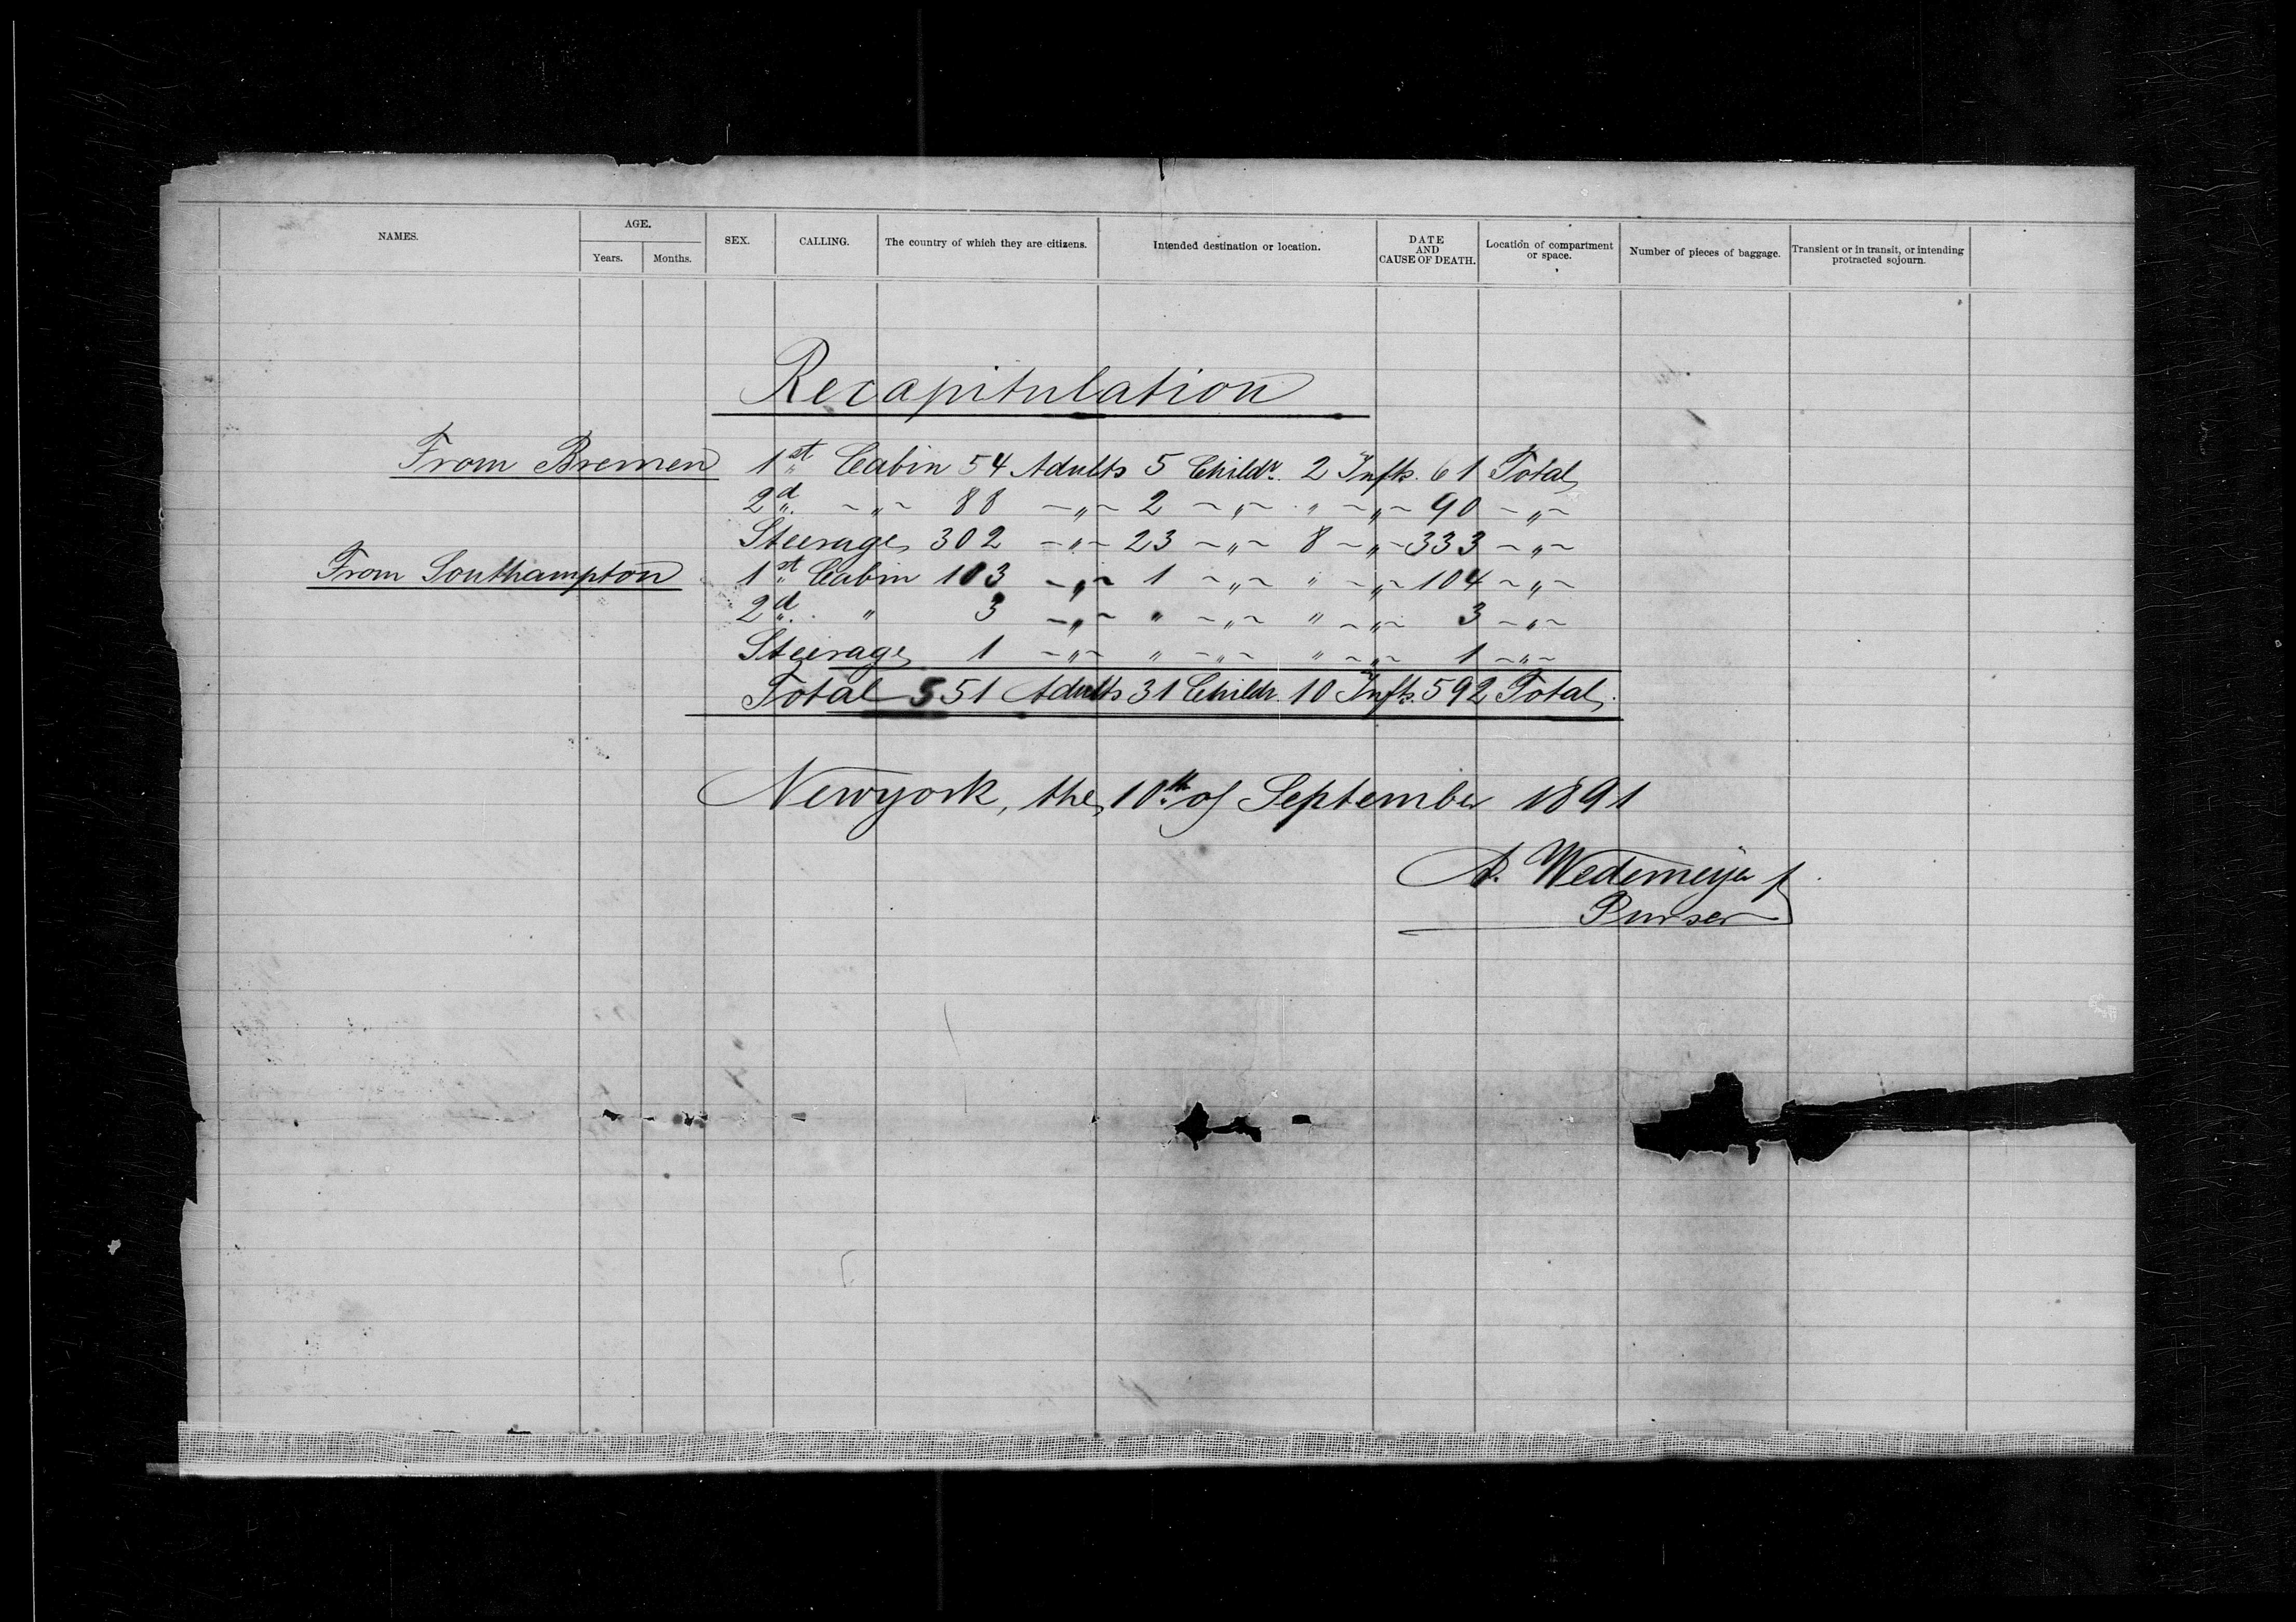 NAMES. AGE. SEX. CALLING. The country of which they are citizens. Intended destination or location. DATE AND CAUSE OF DEATH. Location of compartment or space. Number of pieces of baggage. Transient or in transit, or intending protracted sojourn.
Years. Months.
Recapitulation
From Bremen 1st Cabin 54 Adults 5 Childr. 2 Infts. 61 Total
2d. ~"~ 88 ~"~ 2 ~"~ " ~"~ 90 ~"~
Steerage 302 ~"~ 23 ~"~ 8 ~"~ 333 ~"~
From Southampton 1st Cabin 103 ~"~ 1 ~"~ " ~"~ 104 ~"~
2d. " 3 ~"~ " ~"~ " ~"~ 3 ~"~
Steerage 1 ~"~ " ~"~ " ~"~ 1 ~"~
Total 551 Adults 31 Childr. 10 Infts. 592 Total.
Newyork, the 10th of September 1891
A. Wedemeyer
Purser